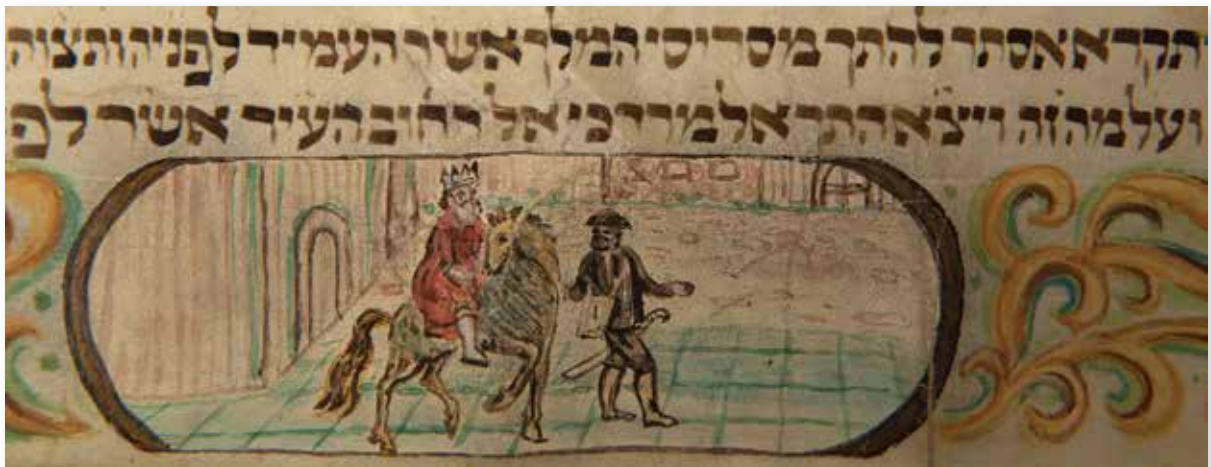 תקרא אסתר להתך מסריסי המלך אשר העמיד לפניה ותצוה
ועל מה זה ויצא התך אל מרדכי אל רחוב העיר אשר לפ